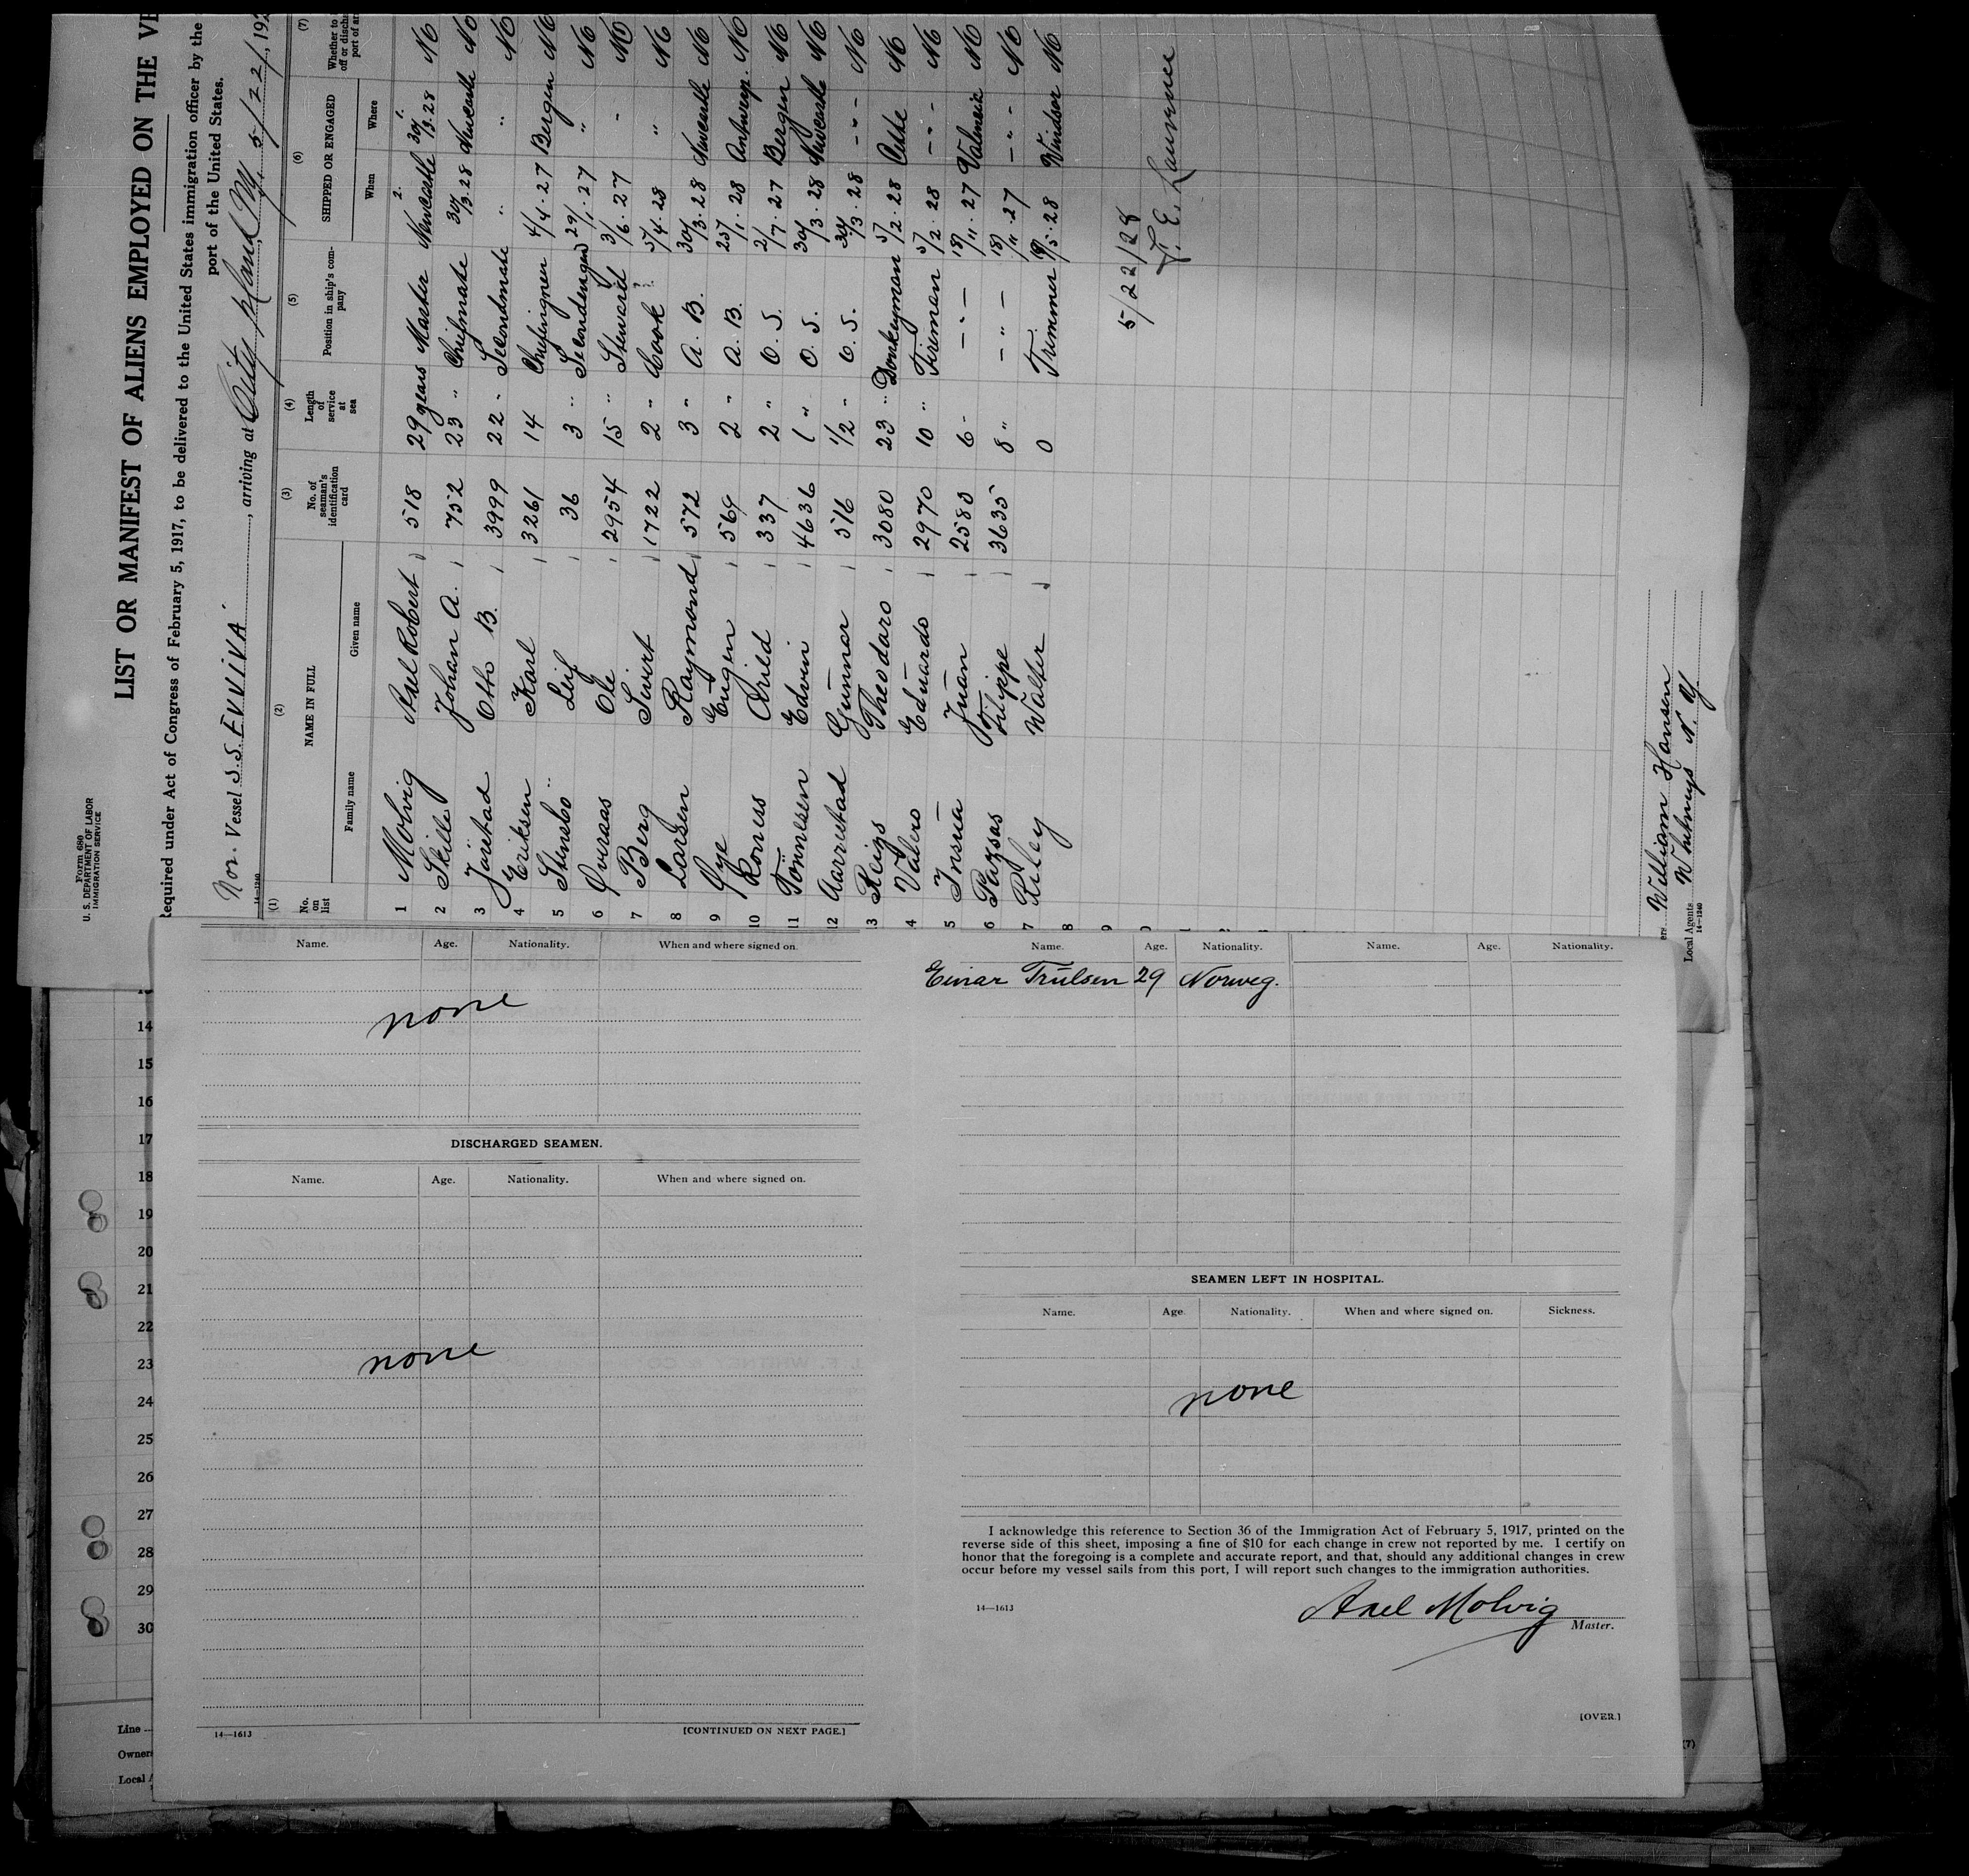 Form 680
U. S. DEPARTMENT OF LABOR
IMMIGRATION SERVICE
LIST OR MANIFEST OF ALIENS EMPLOYED ON THE VE
Required under Act of Congress of February 5, 1917, to be delivered to the United States immigration officer by the
port of the United States.
Nor. Vessel S.S. EVVIVA, arriving at 5/22/, 192
14—1240
(1) (2) (3) (4) (5) (6) (7)
No. on list
NAME IN FULL
Family name Given name
No. of seaman's identification card
Length of service at sea
Position in ship's company
SHIPPED OR ENGAGED
When Where
Whether to
off or discha
port of ar
1 Molvig Axel Robert 518 29 years Master Newcastle 30/3.28 No
2 Skille Johan A. 752 23 " Chiefmate 30/3.28 Newcastle No
3 Jöretad Otto B. 3999 22 " Secondmate " " No
4 Eriksen Karl 3261 14 4/4.27 Bergen No
5 Stensbo Leif 36 3 " 29/1.27 " No
6 Overaas Ole 2954 15 " Steward 3/6.27 - No
7 Berg Sivert 1722 2 " Cook 5/4.28 " No
8 Larsen Raymond 572 3 " A. B. 30/3.28 Newcastle No
9 Øye Eugen 569 2 " A. B. 25/1.28 Antwerp. No
10 Roness Arild 337 2 " O. S. 2/7.27 Bergen No
11 Tönnesen Edvin 4636 1 " O. S. 30/3.28 Newcastle No
12 Aarrestad Gunnar 516 1/2 " O. S. 30/3.28 - " - No
13 Reigs Theodoro 3080 23 " Donkeyman 5/2.28 Cette No
4 Valero Eduardo 2970 10 " Fireman 5/2.28 - " - No
5 Insua Juan 2580 6 - - " - 18/11.27 No
6 Filippe 3635 8 " - " - 18/11.27 - " - No
7 Riley Walter 0 Trimmer /5.28 Windsor No
8
9
5/22/28
E. Laurence
William Hansen
Local Agents Whitneys N. Y.
14—1240
Name. Age. Nationality. When and where signed on.
none
DISCHARGED SEAMEN.
Name. Age. Nationality. When and where signed on.
none
14—1613 [CONTINUED ON NEXT PAGE.]
Name. Age. Nationality. Name. Age. Nationality.
Einar Trulsen 29 Norweg.
SEAMEN LEFT IN HOSPITAL.
Name. Age. Nationality. When and where signed on. Sickness.
none
I acknowledge this reference to Section 36 of the Immigration Act of February 5, 1917, printed on the
reverse side of this sheet, imposing a fine of $10 for each change in crew not reported by me. I certify on
honor that the foregoing is a complete and accurate report, and that, should any additional changes in crew
occur before my vessel sails from this port, I will report such changes to the immigration authorities.
14—1613
Axel Molvig
Master.
[OVER.]
14
15
16
17
18
19
20
21
22
23
24
25
26
27
28
29
30
Line
Owner
Local
(7)